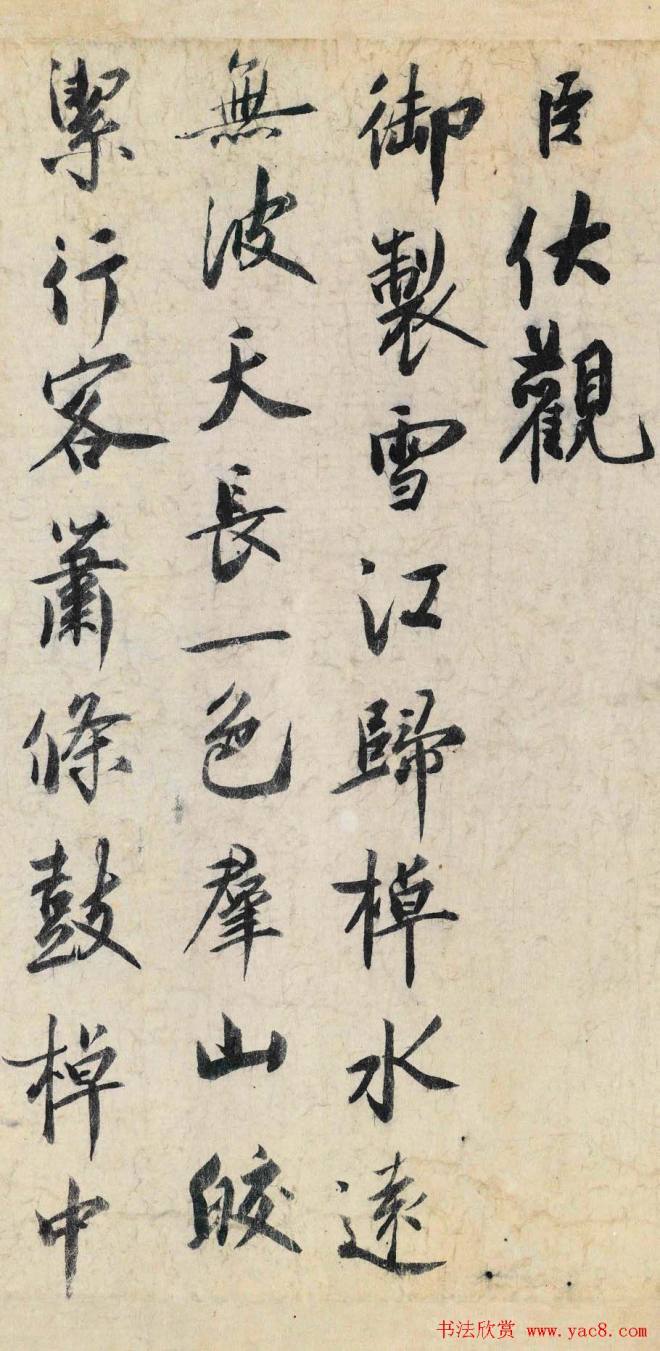 臣伏觀
御製雪江歸棹水遠
無波天長一色羣山皎
潔行客蕭條鼓棹中
书法欣赏 www.yac8.com